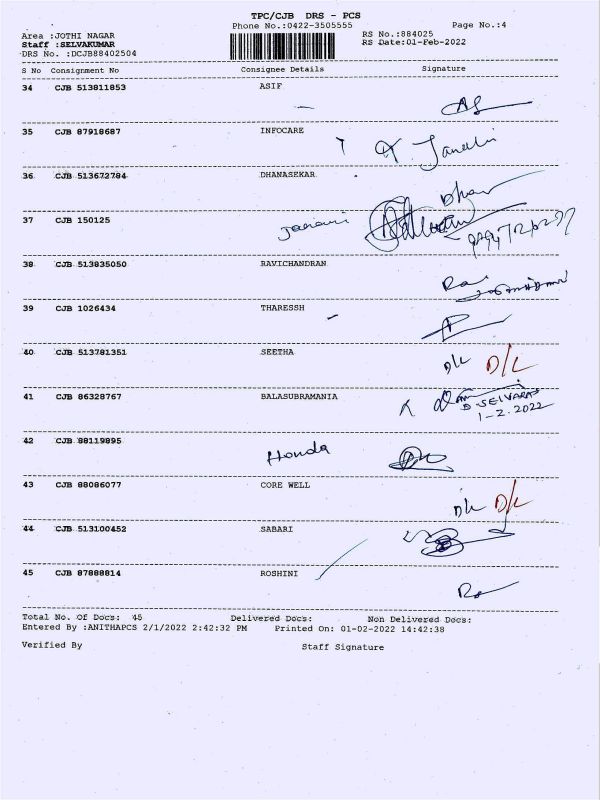 TPC/CJB DRS - PCS
Phone No.:0422-3505555 Page No.:4
Area :JOTHI NAGAR RS No.:884025
Staff :SELVAKUMAR RS Date:01-Feb-2022
DRS No. :DCJB88402504
S No Consignment No Consignee Details Signature
34 CJB 513811853 ASIF
35 CJB 87918687 INFOCARE
36 CJB 513672784 DHANASEKAR
37 CJB 150125
38 CJB 513835050 RAVICHANDRAN
39 CJB 1026434 THARESSH
40 CJB 513781351 SEETHA
D/L D/L
41 CJB 86328767 BALASUBRAMANIA
D.SELVARAJ
1-2.2022
42 CJB 88119895
Honda
43 CJB 88086077 CORE WELL
D/L D/L
44 CJB 513100452 SABARI
45 CJB 87888814 ROSHINI
Total No. Of Docs: 45 Delivered Docs: Non Delivered Docs:
Entered By :ANITHAPCS 2/1/2022 2:42:32 PM Printed On: 01-02-2022 14:42:38
Verified By Staff Signature